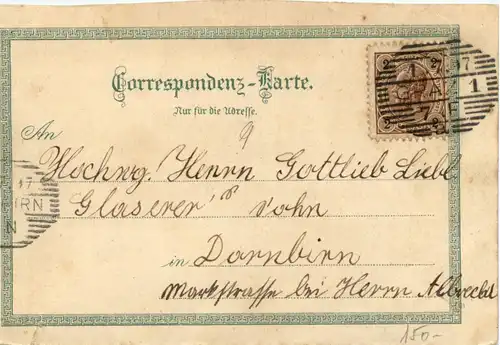 Correspondenz-Karte.
Nur für die Adresse.
9
An
Hochwg. Herrn Gottlieb Liebl
Glaserer's Sohn
in Dornbirn
Markstrasse bei Herrn Albrecht
2 2
97
1
97
IRN
N
150-